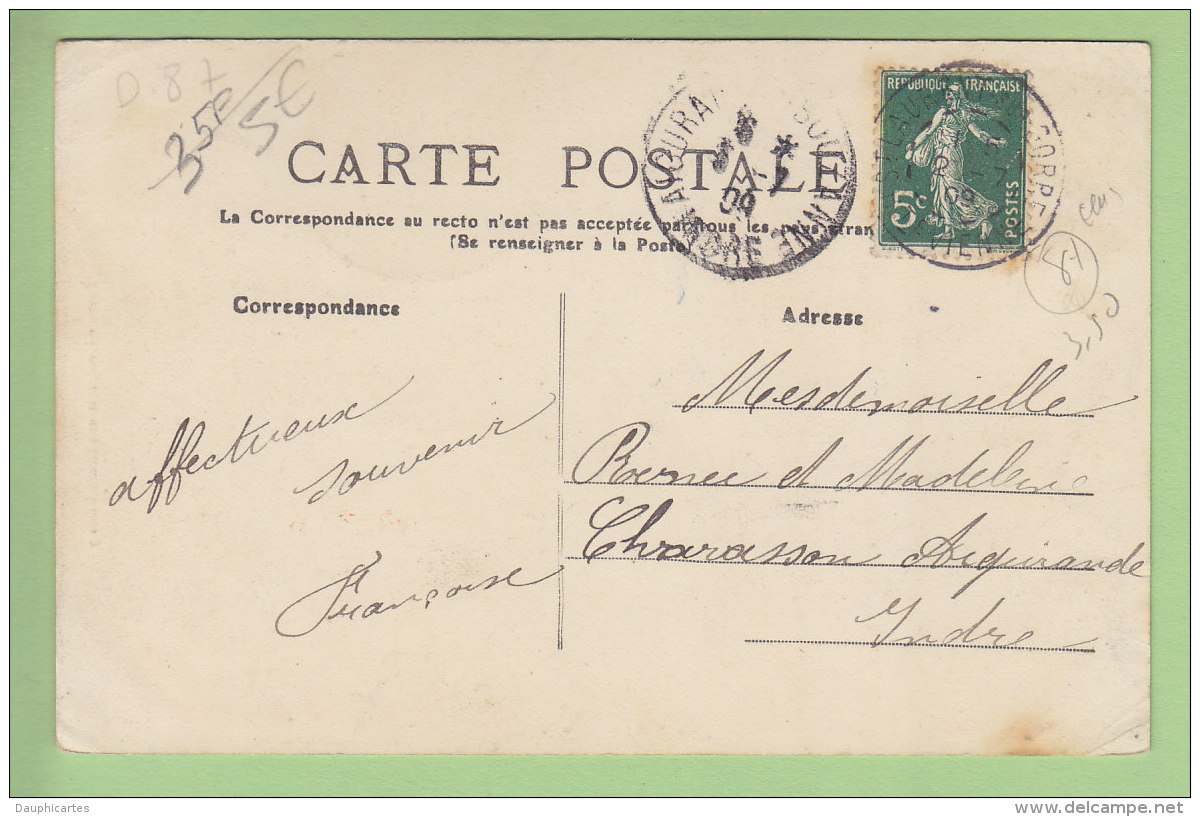 D.87
35F
5€
CARTE POSTALE
La Correspondance au recto n'est pas acceptée par tous les pays étran
(Se renseigner à la Poste)
AIGURANDE BOUZANNE
INDRE
09
RÉPUBLIQUE FRANÇAISE
5c
POSTES
ST LAUR S GORRE
VIENNE
09
87
3,50
Correspondance
Adresse
affectueux
souvenir
Françoise
Mesdemoiselle
Renee et Madeleine
Charasson Aigurande
Indre
Dauphicartes
http://www.delcampe.net